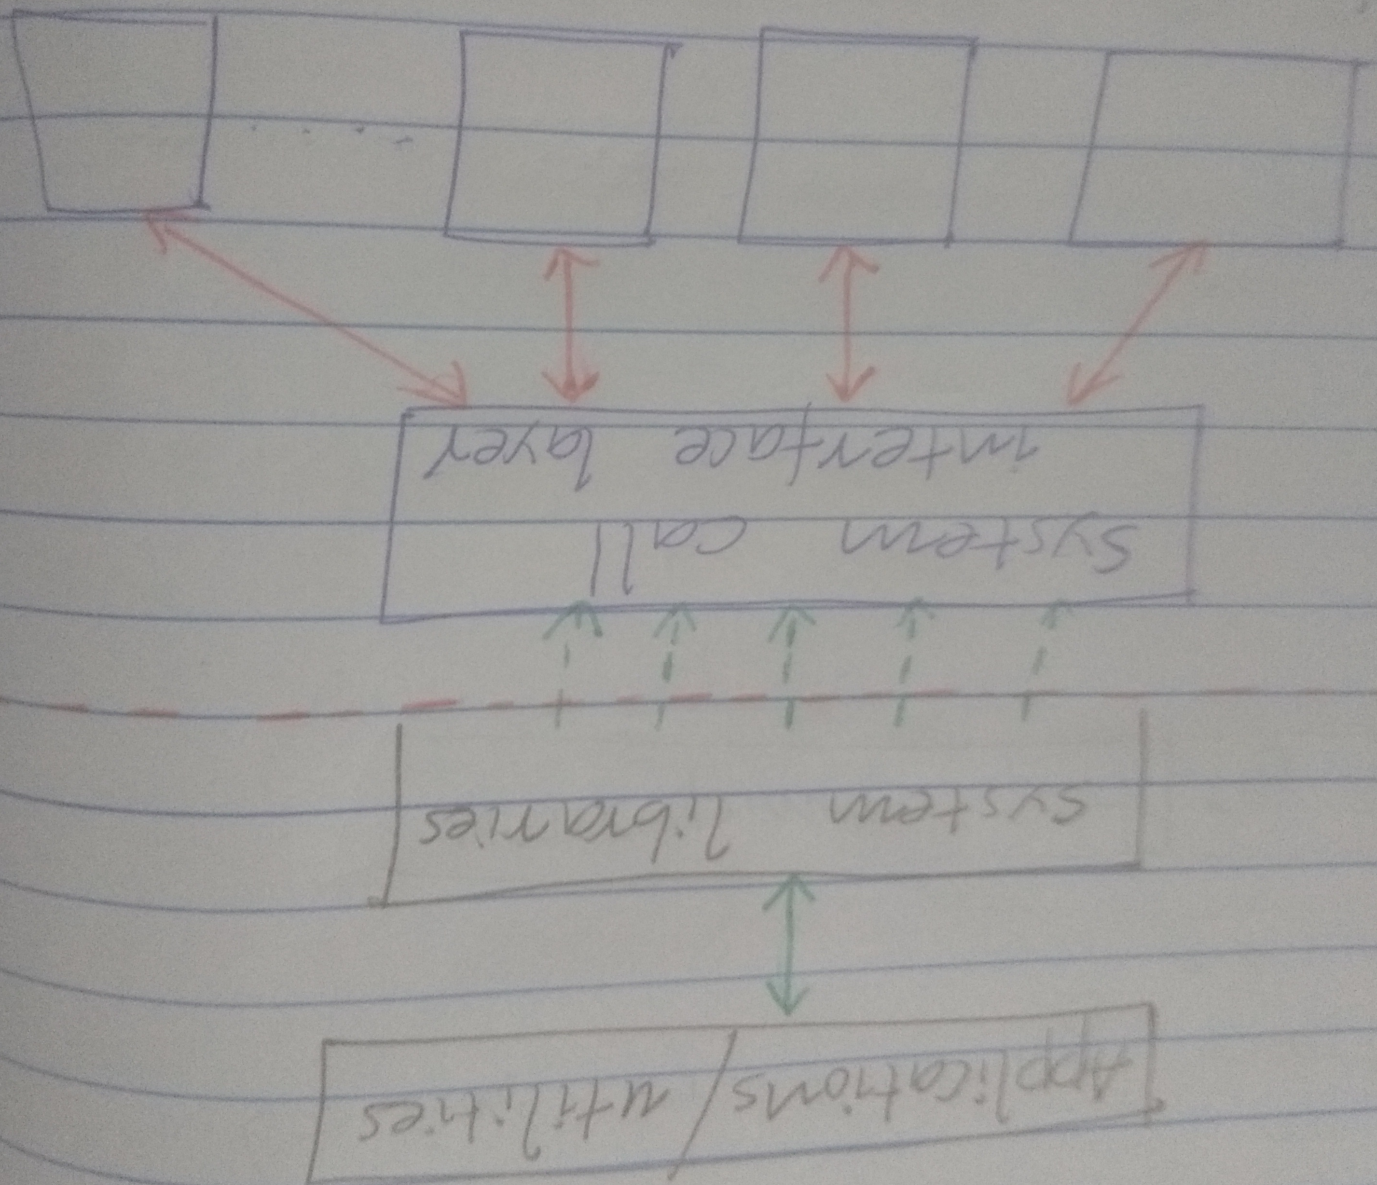 Applications/utilities
system libraries
system call
interface layer